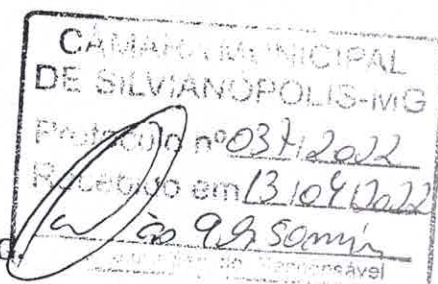 CÂMARA MUNICIPAL
DE SILVIANÓPOLIS-MG
Protocolo nº 037/2022
Recebido em 13/04/2022
às 9h 50min
Responsável